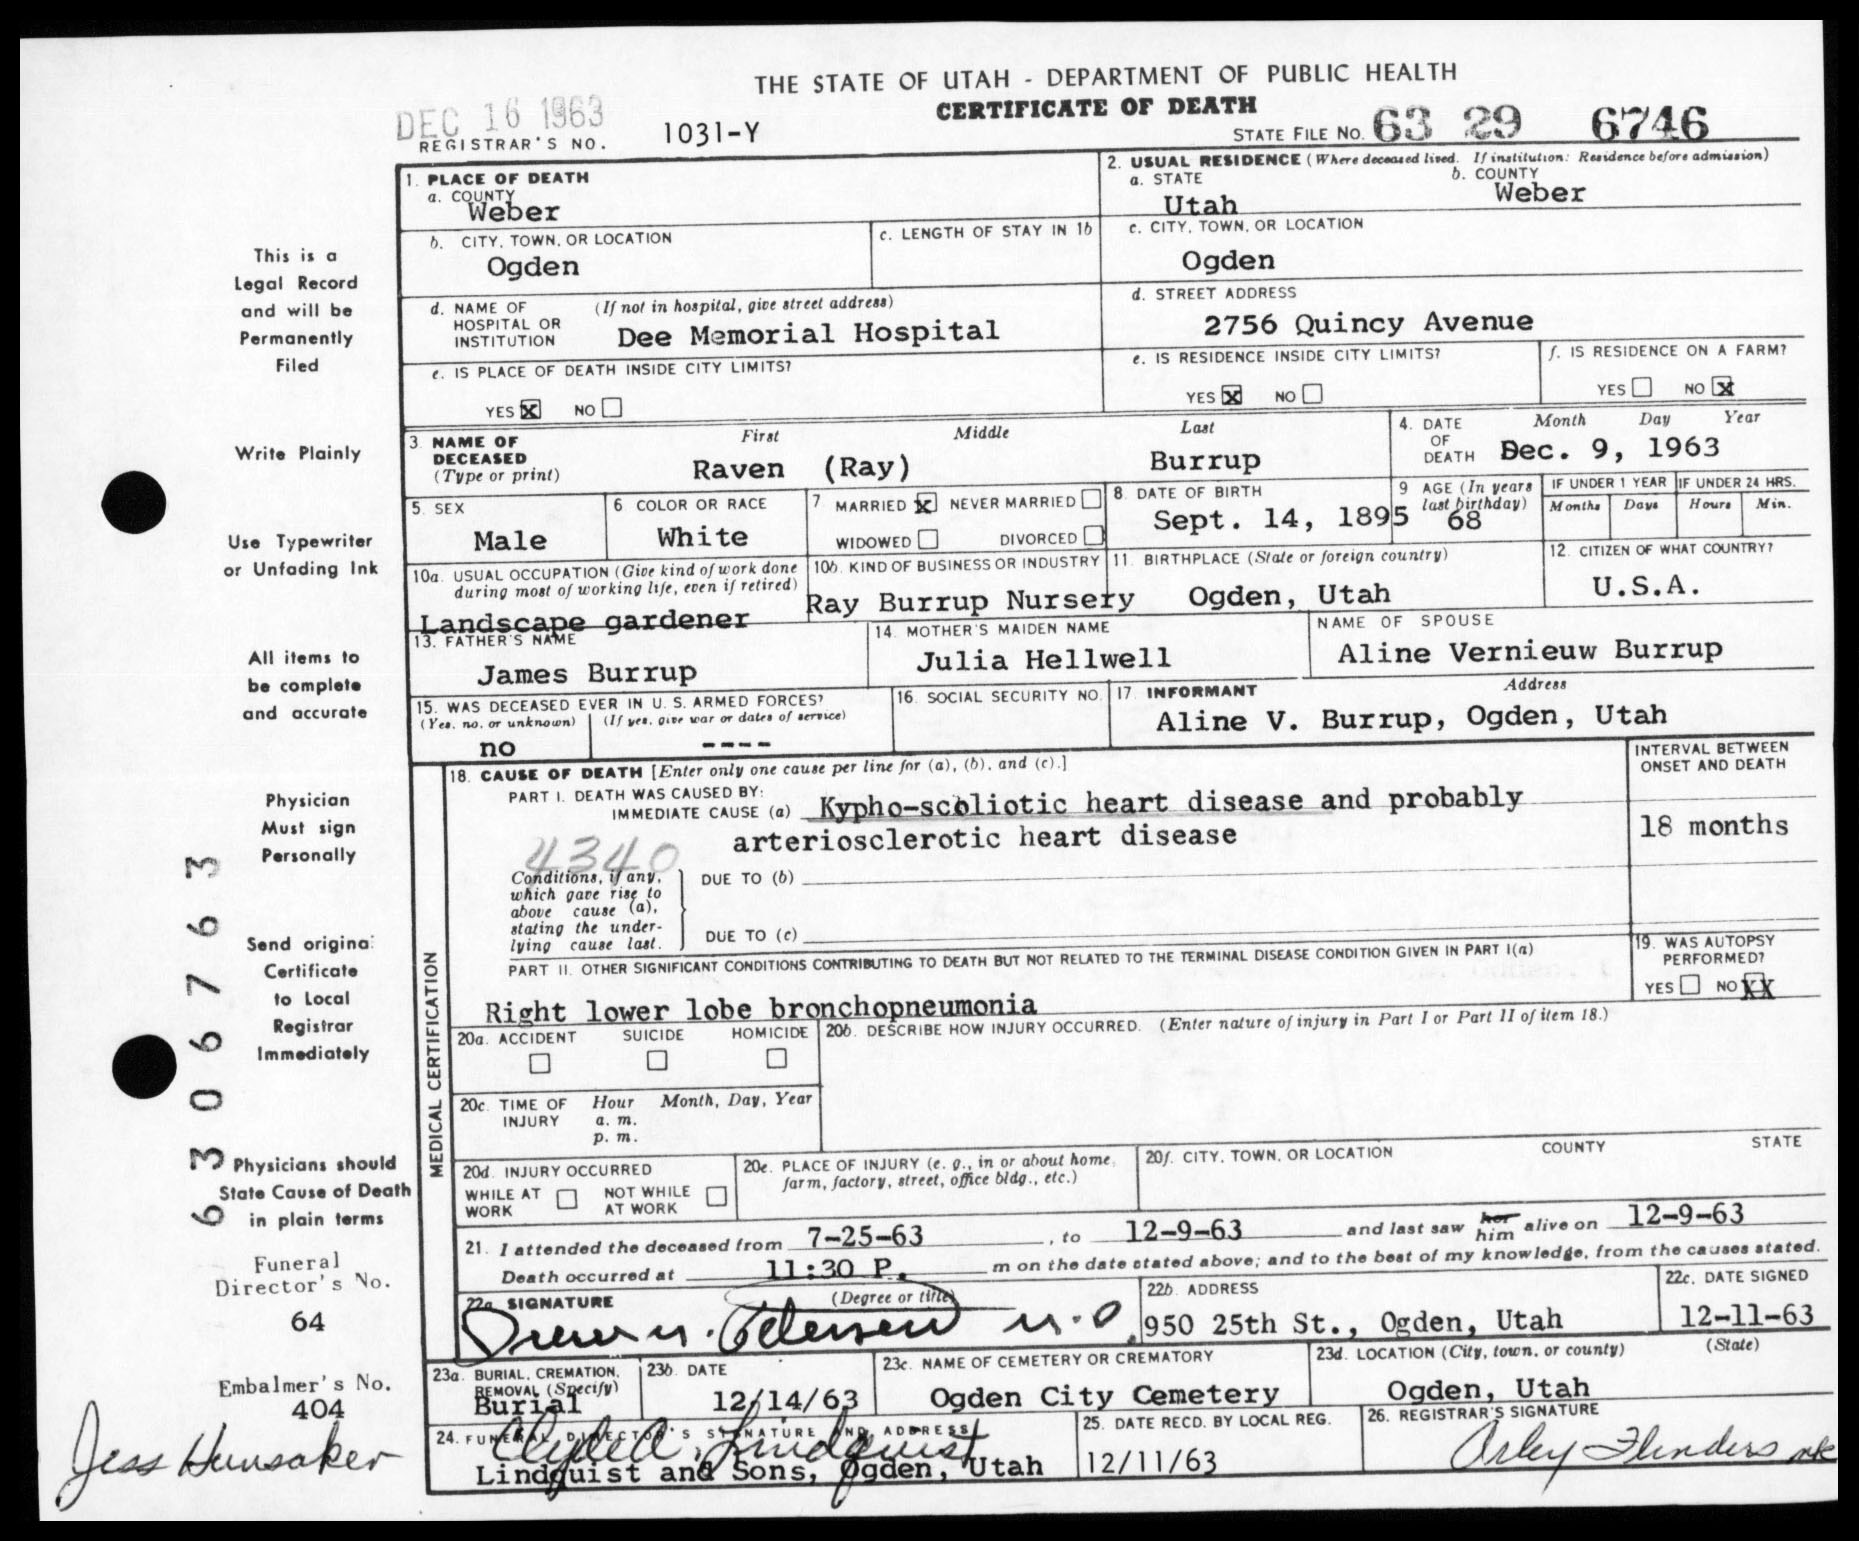 THE STATE OF UTAH - DEPARTMENT OF PUBLIC HEALTH
CERTIFICATE OF DEATH
DEC 16 1963
REGISTRAR'S NO. 1031-Y
STATE FILE NO. 63 29 6746
1. PLACE OF DEATH
a. COUNTY
Weber
2. USUAL RESIDENCE (Where deceased lived. If institution: Residence before admission)
a. STATE
Utah
b. COUNTY
Weber
b. CITY, TOWN, OR LOCATION
Ogden
c. LENGTH OF STAY IN 1b
c. CITY, TOWN, OR LOCATION
Ogden
d. NAME OF HOSPITAL OR INSTITUTION
(If not in hospital, give street address)
Dee Memorial Hospital
d. STREET ADDRESS
2756 Quincy Avenue
e. IS PLACE OF DEATH INSIDE CITY LIMITS?
YES X NO
e. IS RESIDENCE INSIDE CITY LIMITS?
YES X NO
f. IS RESIDENCE ON A FARM?
YES NO X
3. NAME OF DECEASED
(Type or print)
First Middle Last
Raven (Ray) Burrup
4. DATE OF DEATH
Month Day Year
Dec. 9, 1963
5. SEX
Male
6. COLOR OR RACE
White
7. MARRIED X NEVER MARRIED
WIDOWED DIVORCED
8. DATE OF BIRTH
Sept. 14, 1895
9. AGE (In years last birthday)
68
IF UNDER 1 YEAR
Months Days
IF UNDER 24 HRS.
Hours Min.
10a. USUAL OCCUPATION (Give kind of work done during most of working life, even if retired)
Landscape gardener
10b. KIND OF BUSINESS OR INDUSTRY
Ray Burrup Nursery
11. BIRTHPLACE (State or foreign country)
Ogden, Utah
12. CITIZEN OF WHAT COUNTRY?
U.S.A.
13. FATHER'S NAME
James Burrup
14. MOTHER'S MAIDEN NAME
Julia Hellwell
NAME OF SPOUSE
Aline Vernieuw Burrup
15. WAS DECEASED EVER IN U. S. ARMED FORCES?
(Yes, no, or unknown) (If yes, give war or dates of service)
no ----
16. SOCIAL SECURITY NO.
17. INFORMANT Address
Aline V. Burrup, Ogden, Utah
MEDICAL CERTIFICATION
18. CAUSE OF DEATH [Enter only one cause per line for (a), (b), and (c).]
PART I. DEATH WAS CAUSED BY:
IMMEDIATE CAUSE (a) Kypho-scoliotic heart disease and probably
arteriosclerotic heart disease
INTERVAL BETWEEN ONSET AND DEATH
18 months
4340
Conditions, if any, which gave rise to above cause (a), stating the underlying cause last.
DUE TO (b)
DUE TO (c)
PART II. OTHER SIGNIFICANT CONDITIONS CONTRIBUTING TO DEATH BUT NOT RELATED TO THE TERMINAL DISEASE CONDITION GIVEN IN PART I(a)
Right lower lobe bronchopneumonia
19. WAS AUTOPSY PERFORMED?
YES NO XX
20a. ACCIDENT SUICIDE HOMICIDE
20b. DESCRIBE HOW INJURY OCCURRED. (Enter nature of injury in Part I or Part II of item 18.)
20c. TIME OF INJURY
Hour Month, Day, Year
a. m.
p. m.
20d. INJURY OCCURRED
WHILE AT WORK NOT WHILE AT WORK
20e. PLACE OF INJURY (e. g., in or about home, farm, factory, street, office bldg., etc.)
20f. CITY, TOWN, OR LOCATION COUNTY STATE
21. I attended the deceased from 7-25-63, to 12-9-63 and last saw her him alive on 12-9-63
Death occurred at 11:30 P. m on the date stated above; and to the best of my knowledge, from the causes stated.
22a. SIGNATURE (Degree or title)
Petersen M.D.
22b. ADDRESS
950 25th St., Ogden, Utah
22c. DATE SIGNED
12-11-63
23a. BURIAL, CREMATION, REMOVAL (Specify)
Burial
23b. DATE
12/14/63
23c. NAME OF CEMETERY OR CREMATORY
Ogden City Cemetery
23d. LOCATION (City, town, or county) (State)
Ogden, Utah
24. FUNERAL DIRECTOR'S SIGNATURE AND ADDRESS
Clyde A. Lindquist
Lindquist and Sons, Ogden, Utah
25. DATE RECD. BY LOCAL REG.
12/11/63
26. REGISTRAR'S SIGNATURE
Arley Flinders
This is a
Legal Record
and will be
Permanently
Filed
Write Plainly
Use Typewriter
or Unfading Ink
All items to
be complete
and accurate
Physician
Must sign
Personally
Send original
Certificate
to Local
Registrar
Immediately
Physicians should
State Cause of Death
in plain terms
6306763
Funeral
Director's No.
64
Embalmer's No.
404
Jess Hunsaker